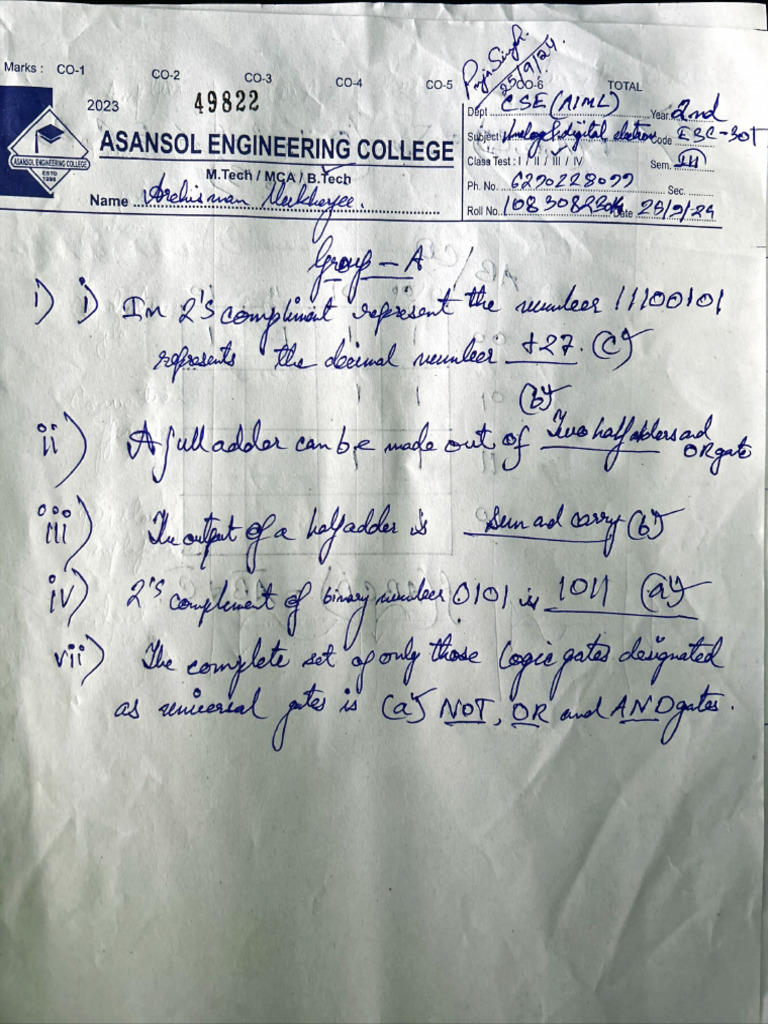 Marks : CO-1 CO-2 CO-3 CO-4 CO-5 CO-6 TOTAL
25/9/24.
2023 49822
ASANSOL ENGINEERING COLLEGE
ASANSOL ENGINEERING COLLEGE
ESTD
1998
M.Tech / MCA / B.Tech
Name Archisman Mukherjee.
Dept CSE (AIML) Year 2nd
Subject Analog & digital Code ESC-301
Class Test : I / II / III / IV Sem. III
Ph. No. 6290228077 Sec.
Roll No. Date 25/9/24
Group - A
1) i) In 2's compliment represent the number 11100101
represents the decimal number +27. (c)
(b)
ii) A full adder can be made out of Two half adders ad
OR gate
iii) The output of a half adder is Sum ad carry (b)
iv) 2's complement of binary number 0101 is 1011 (a)
vii) The complete set of only those Logic gates designated
as universal gates is (a) NOT, OR and AND gates.